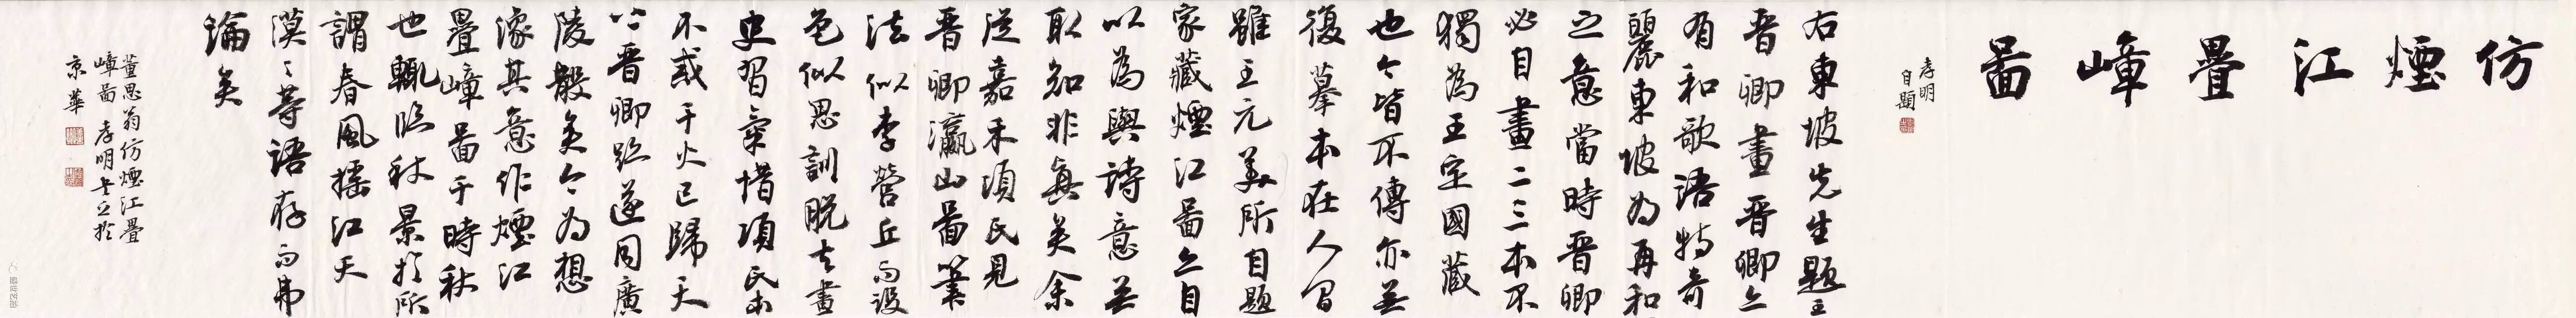 仿煙江疊嶂圖
孝明
自題
右東坡先生題王
晋卿畫晋卿亦
有和歌語特奇
麗東坡為再和
之意當時晋卿
必自畫二三本不
獨為王定國藏
也今皆不傳亦無
復摹本在人間
雖王元美所自題
家藏煙江圖亦自
以為與詩意無
取知非真矣余
從嘉禾項氏見
晋卿瀛山圖筆
法似李營丘而設
色似思訓脫去畫
史習氣惜項氏本
不戒于火已歸天
上晋卿跡遂同廣
陵散矣今為想
像其意作煙江
疊嶂圖于時秋
也輒臨秋景於所
謂春風搖江天
漠々等語存而弗
論矣
董思翁仿煙江疊
嶂圖 孝明書之於
京華